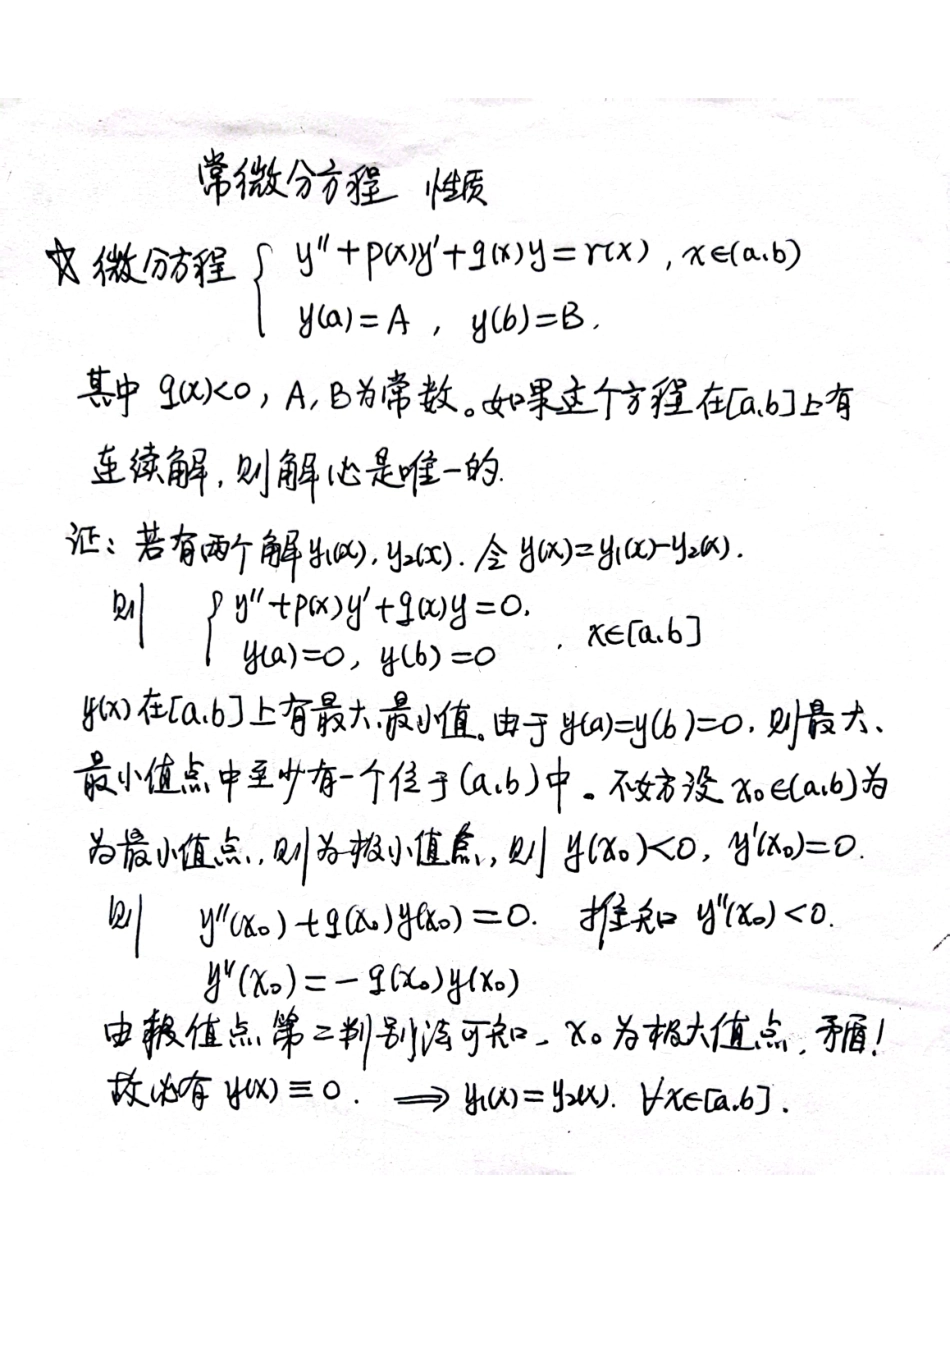 常微分方程 性质
☆ 微分方程 { y''+p(x)y'+q(x)y=r(x), x∈(a,b)
y(a)=A, y(b)=B.
其中 q(x)<0, A, B为常数。如果这个方程在[a,b]上有
连续解, 则解必是唯一的.
证: 若有两个解y₁(x), y₂(x). 令 y(x)=y₁(x)-y₂(x).
则 { y''+p(x)y'+q(x)y=0.
y(a)=0, y(b)=0 , x∈[a,b]
y(x)在[a,b]上有最大、最小值。由于y(a)=y(b)=0, 则最大、
最小值点中至少有一个位于(a,b)中。不妨设 x₀∈(a,b)为
为最小值点, 则为极小值点, 则 y(x₀)<0, y'(x₀)=0.
则 y''(x₀)+q(x₀)y(x₀)=0. 推知 y''(x₀)<0.
y''(x₀)=-q(x₀)y(x₀)
由极值点第二判别法可知, x₀为极大值点, 矛盾!
故必有 y(x)≡0. ⟹ y₁(x)=y₂(x). ∀x∈[a,b].